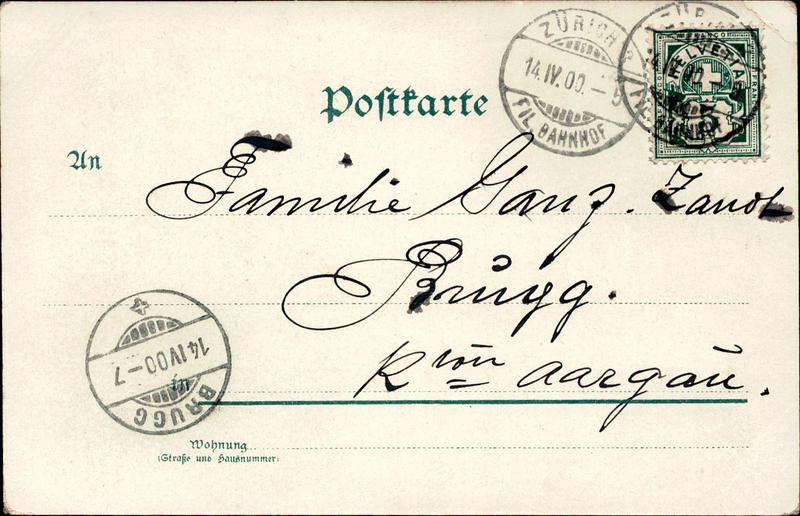 ZÜRICH
14.IV.00.–5
FIL. BAHNHOF
HELVETIA
5
Postkarte
An
Familie Ganz.
Brugg.
Kton Aargau.
14 IV 00–7
BRUGG
in
Wohnung
(Straße und Hausnummer)